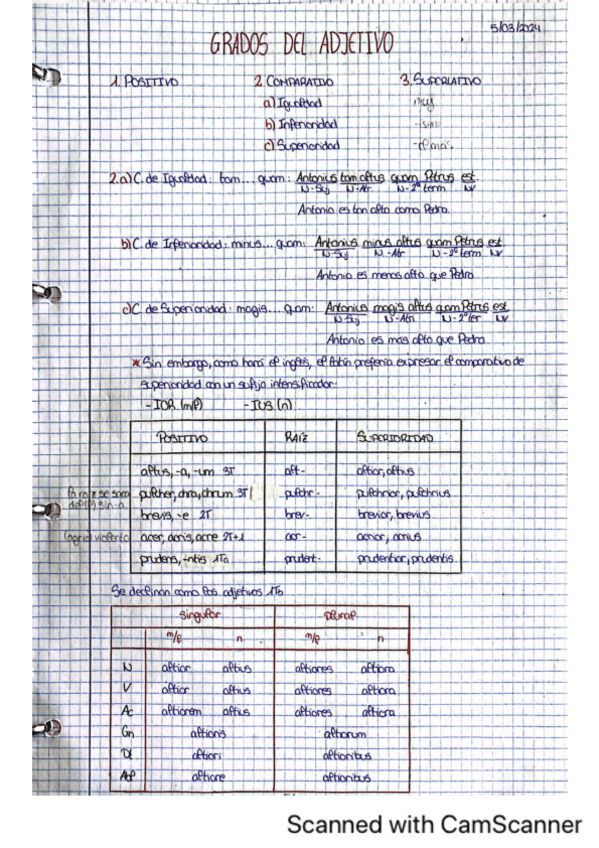 5/03/2024
GRADOS DEL ADJETIVO
1. POSITIVO 2. COMPARATIVO 3. SUPERLATIVO
a) Igualdad muy
b) Inferioridad
c) Superioridad
2.a) C. de Igualdad: tam... quam: Antonius tam altus quam Petrus est.
N-Suj N-Atr N-2º term NV
Antonio es tan alto como Pedro.
b) C. de Inferioridad: minus... quam: Antonius minus altus quam Petrus est
N-Suj N-Atr N-2º term NV
Antonio es menos alto que Pedro
c) C. de Superioridad: magis... quam: Antonius magis altus quam Petrus est
N-Suj N-Atri N-2º ter NV
Antonio es mas alto que Pedro
* Sin embargo, como hará el inglés, el latín prefería expresar el comparativo de
superioridad con un sufijo intensificador:
-IOR (m/f) -IUS (n)
POSITIVO RAÍZ SUPERIORIDAD
altus, -a, -um 3T alt- altior, altius
pulcher, chra, chrum 3T pulchr- pulchrior, pulchrius
brevis, -e 2T brev- brevior, brevius
acer, acris, acre 2T+1 acr- acrior, acrius
prudens, -ntis 1Ta prudent- prudentior, prudentis
Se declinan como los adjetivos 1Tb
singular plural
m/f n m/f n
N altior altius altiores altiora
V altior altius altiores altiora
Ac altiorem altius altiores altiora
Gn altioris altiorum
Dt altiori altioribus
Abl altiore altioribus
Scanned with CamScanner